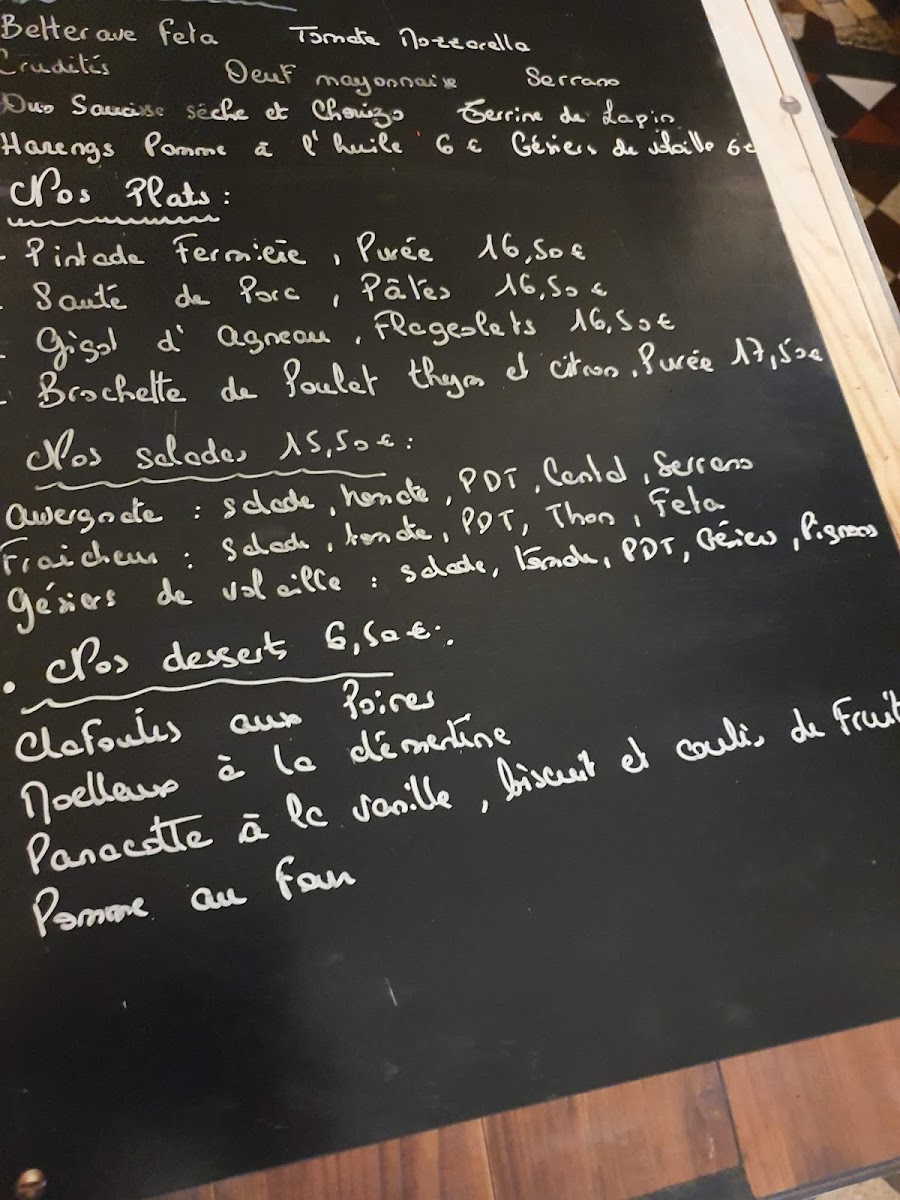 Betterave Feta Tomate Mozzarella
Crudités Oeuf mayonnaise Serrano
Duo Saucisse sèche et Chorizo Terrine de Lapin
Harengs Pomme à l'huile 6€ Gésiers de volaille 6€
Nos Plats:
- Pintade Fermière, Purée 16,50€
- Sauté de Porc, Pâtes 16,50€
- Gigot d'agneau, Flageolets 16,50€
- Brochette de Poulet thym et citron, Purée 17,50€
Nos salades 15,50€:
Auvergnate: salade, tomate, PDT, Cantal, Serrano
Fraicheur: Salade, tomate, PDT, Thon, Feta
Gésiers de volaille: salade, tomate, PDT, Gésiers, Pignons
• Nos desserts 6,50€:
Clafoutis aux Poires
Moelleux à la clémentine
Panacotte à la vanille, biscuit et coulis de Fruit
Pomme au Four